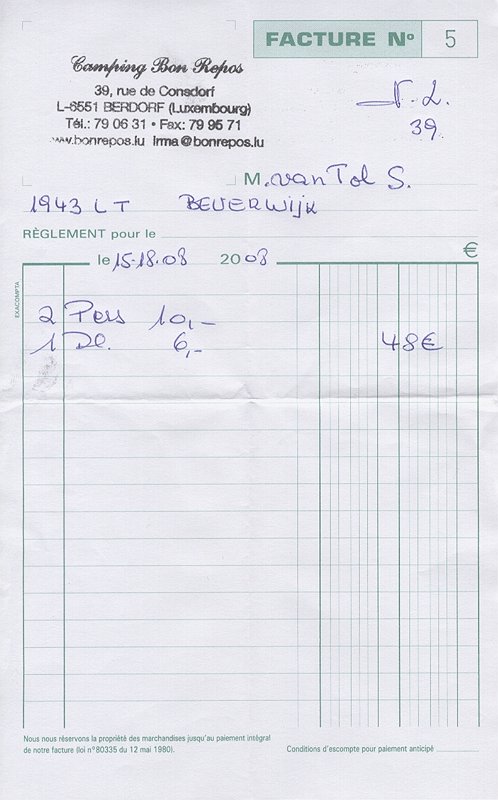 FACTURE Nº 5
Camping Bon Repos
39, rue de Consdorf
L-6551 BERDORF (Luxembourg)
Tél.: 79 06 31 • Fax: 79 95 71
www.bonrepos.lu Irma@bonrepos.lu
N.L.
39.
M. van Tol S.
1943 LT BEVERWIJK
RÈGLEMENT pour le
le 15-18.08 2008 €
EXACOMPTA
2 Pers 10,-
1 Pl. 6,- 48€
Nous nous réservons la propriété des marchandises jusqu'au paiement intégral
de notre facture (loi n°80335 du 12 mai 1980).
Conditions d'escompte pour paiement anticipé